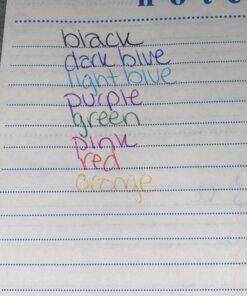 black
dark blue
light blue
purple
green
pink
red
orange